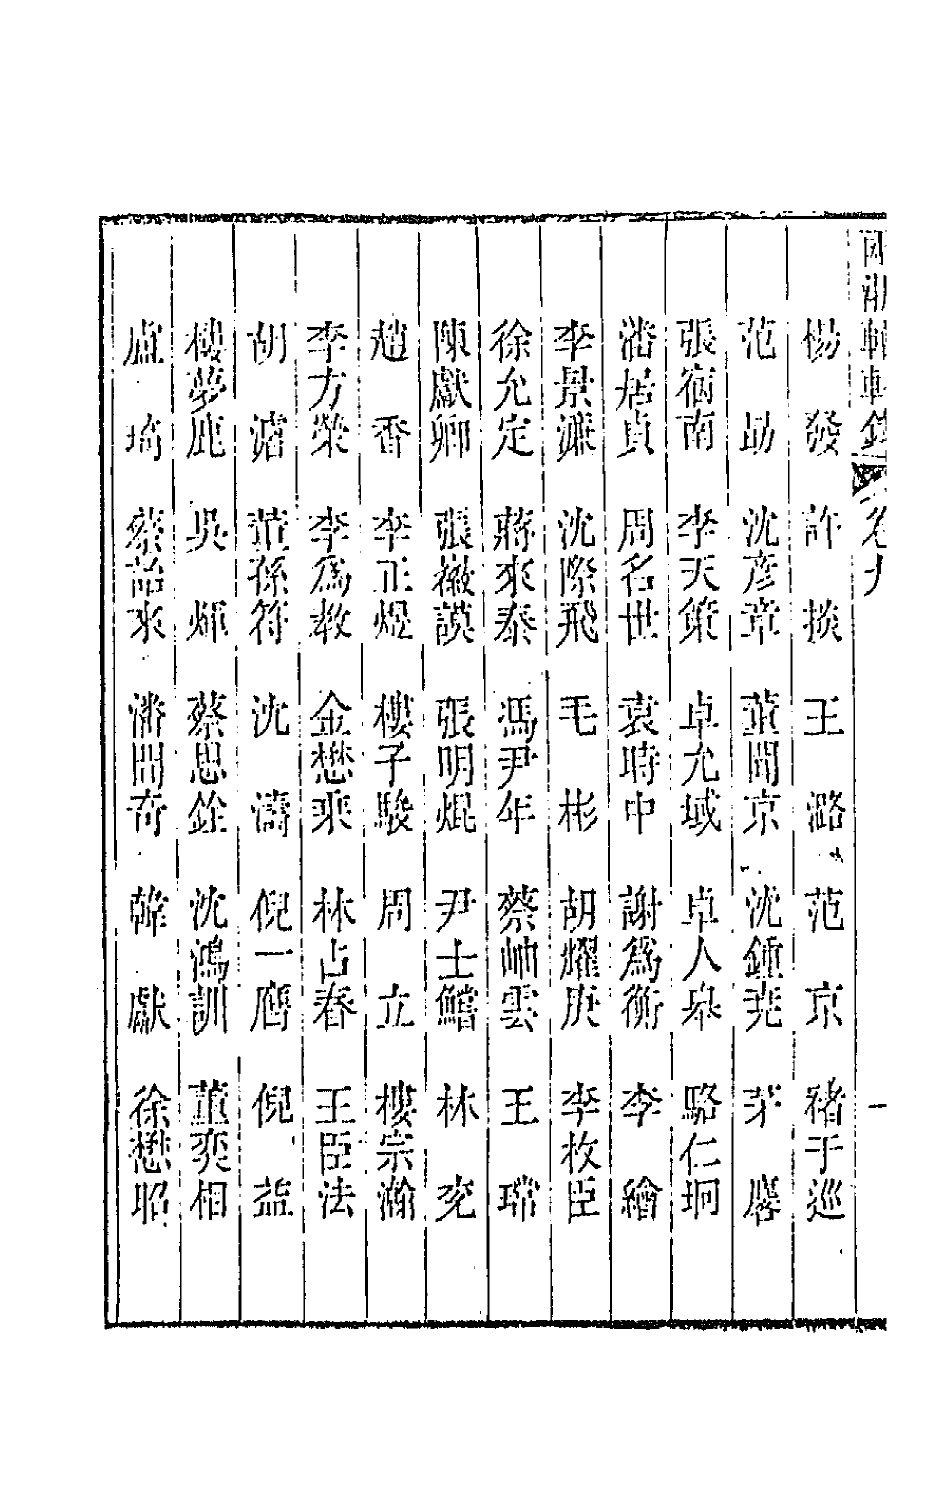 輶軒錄 卷九 一
楊發 許掞 王潞 范京 褚于巡
范勗 沈彥章 董聞京 沈鍾尭 茅麐
張宿南 李天策 卓允域 卓人皋 駱仁坰
潘居貞 周名世 袁時中 謝爲衡 李繪
李景濂 沈際飛 毛彬 胡耀庚 李枚臣
徐允定 蔣來泰 馮尹年 蔡岫雲 王瑺
陳獻卿 張檄謨 張明焜 尹士鱛 林兖
趙香 李正煜 樓子駿 周立 樓宗瀚
李方榮 李爲教 金懋乘 林占春 王臣法
胡濬 董孫符 沈濤 倪一膺 倪益
樓夢鹿 吳煇 蔡思銓 沈鴻訓 董奕相
盧埼 蔡詒來 潘開奇 韓獻 徐懋昭